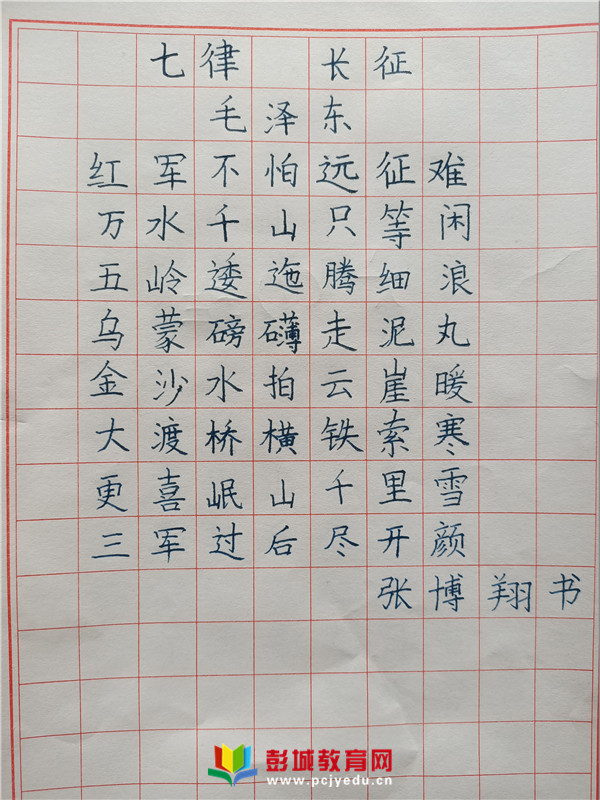 七律 长征
毛泽东
红军不怕远征难
万水千山只等闲
五岭逶迤腾细浪
乌蒙磅礴走泥丸
金沙水拍云崖暖
大渡桥横铁索寒
更喜岷山千里雪
三军过后尽开颜
张博翔书
彭城教育网
www.pcjyedu.cn